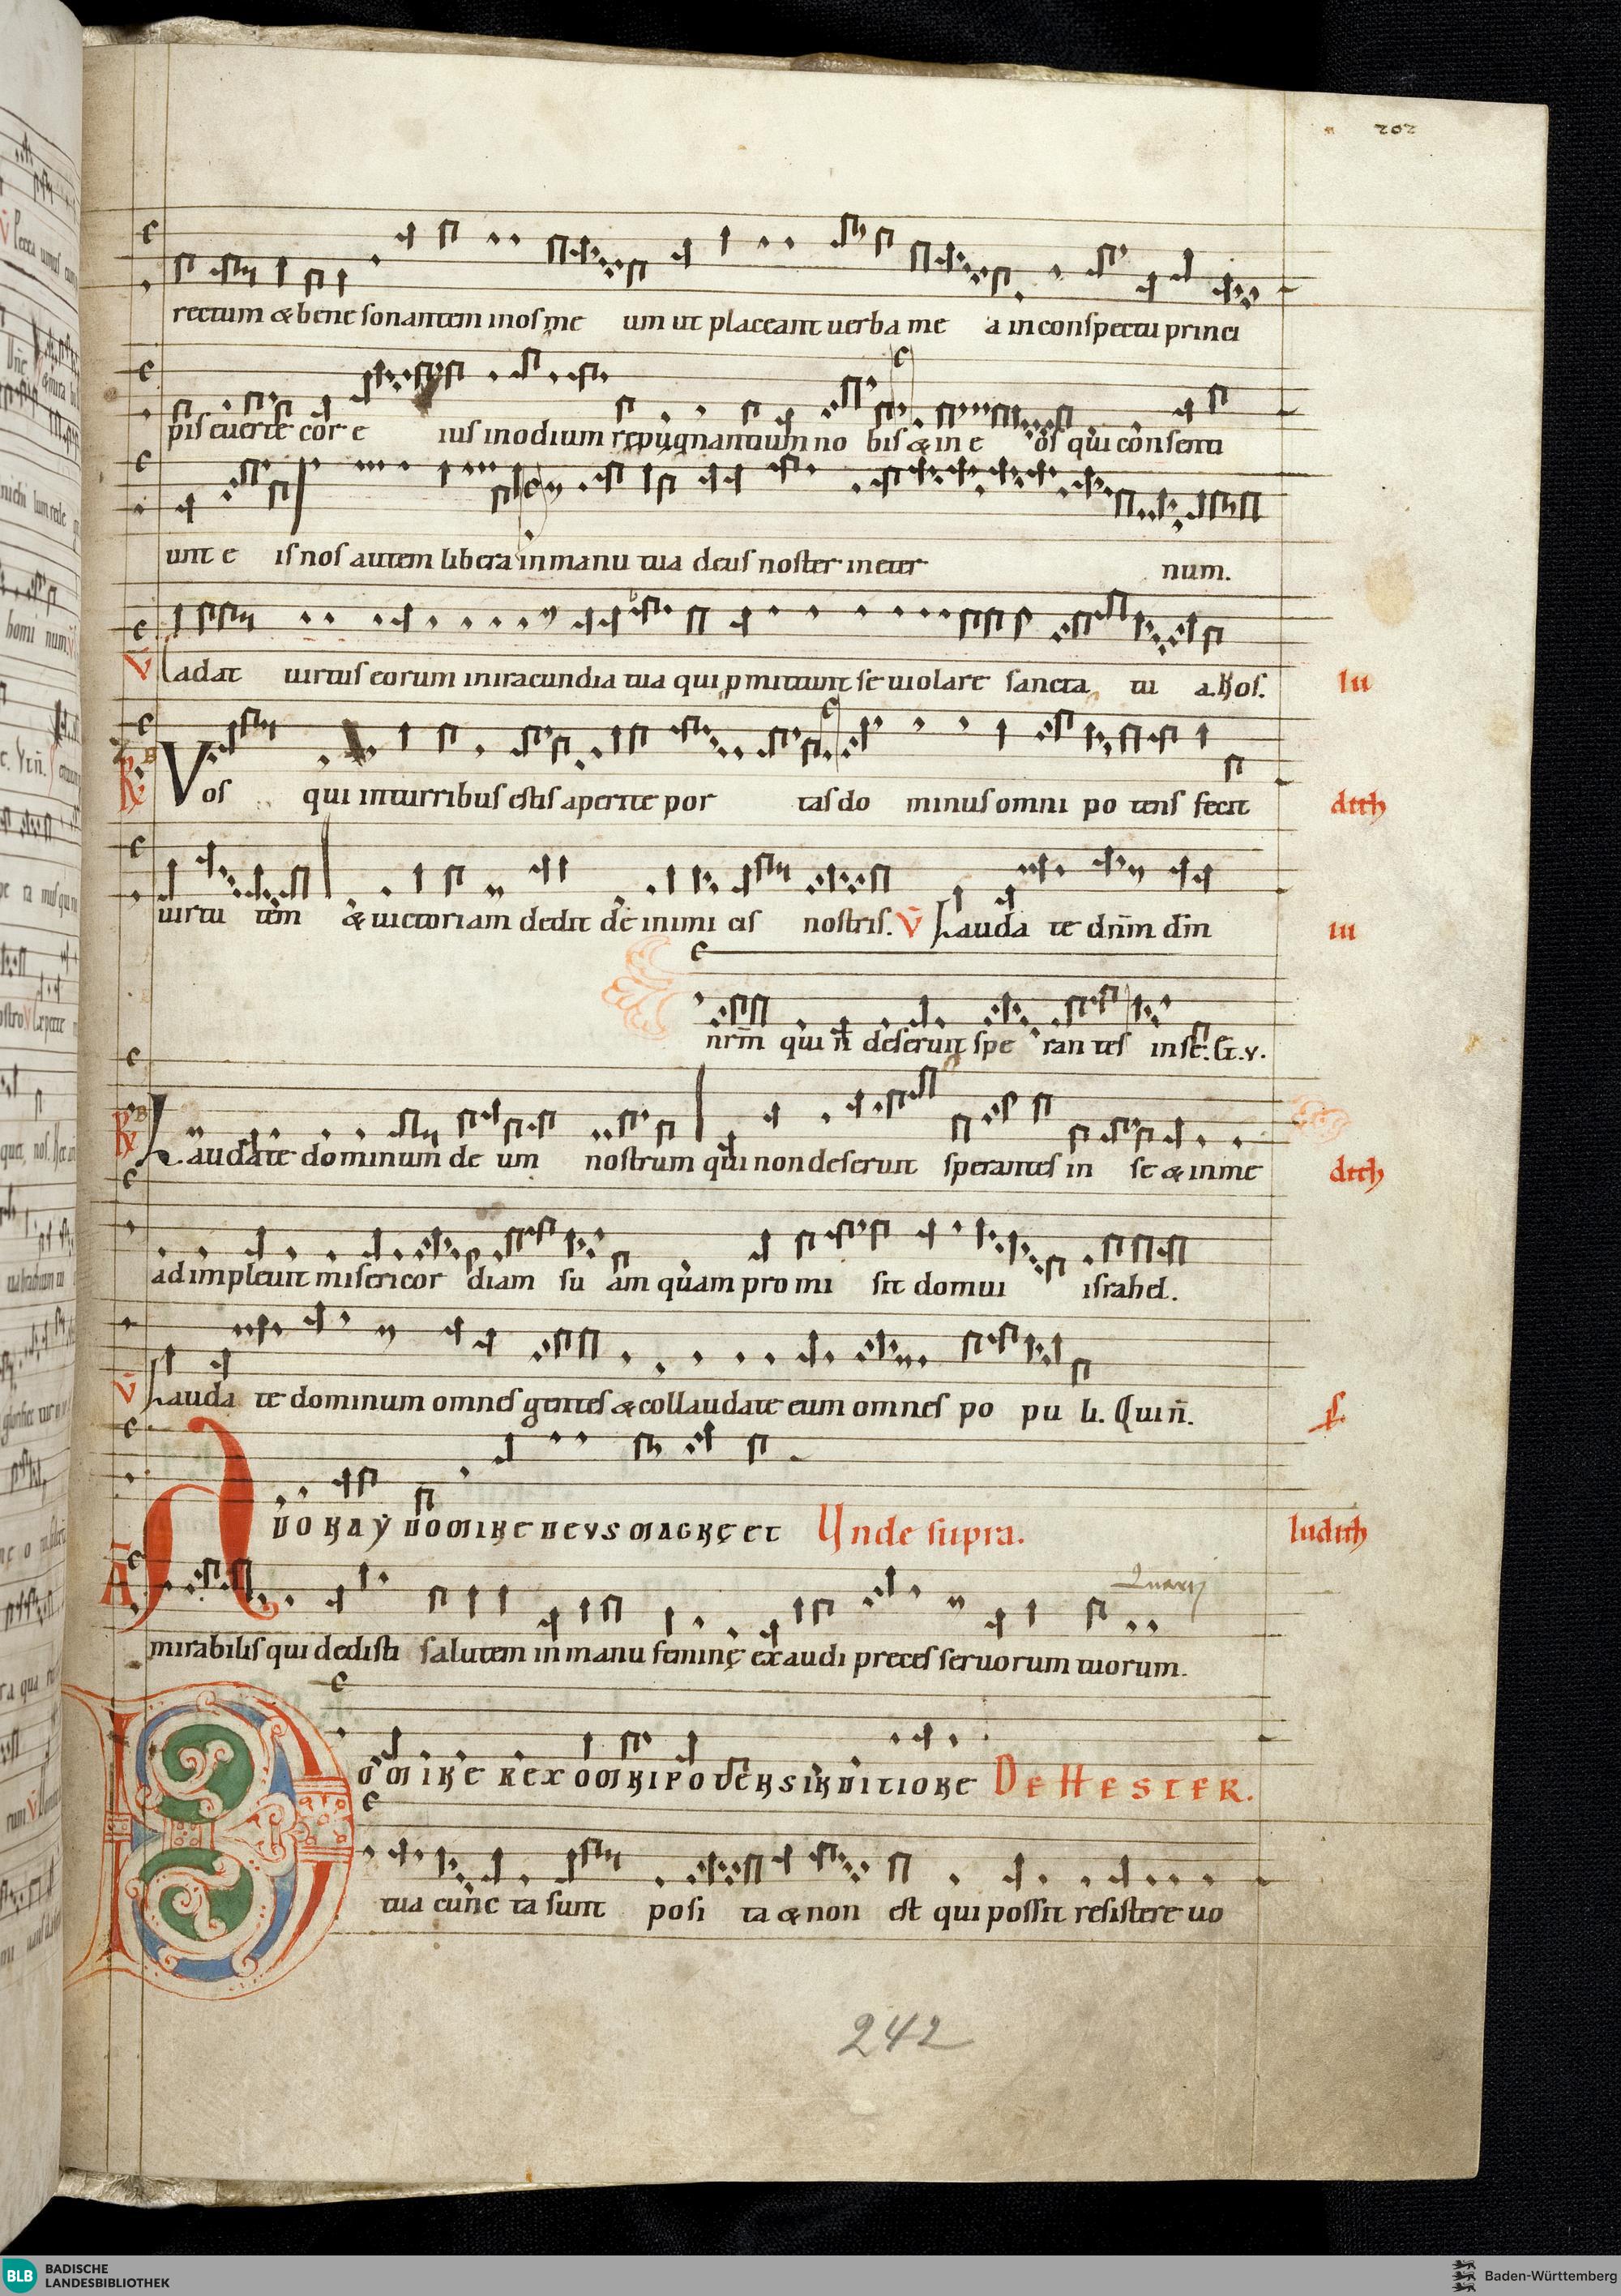 202
rectum & bene sonantem in os me um ut placeant uerba me a in conspectu princi
pis euerte cor e ius in odium repugnantium no bis & in e os qui consenti
unt e is nos autem libera in manu tua deus noster in eter num.
V̄ Cadat uirtus eorum in iracundia tua qui pmittunt se uiolare sancta tu a. Hos. Iu
R̸ Vos qui in turribus estis aperite por tas do minus omni po tens fecit dith
uirtu tem & uictoriam dedit de inimi cis nostris. V̄ Lauda te dn̄m dm̄ iu
nrm̄ qui n̄ deseruit spe ran tes in se. Gl. v.
R̸ Laudate dominum de um nostrum qui non deseruit sperantes in se & in me dith
adimpleuit misericor diam su am quam pro mi sit domui israhel.
V̄ Lauda te dominum omnes gentes & collaudate eum omnes po pu li. Quin̄.
ADONAY DOMINE DEUS MAGNE ET Unde supra. Iudith
Quarti
Ā mirabilis qui dedisti salutem in manu feminę exaudi preces seruorum tuorum.
DOMINE REX OMNIPOTENS IN DITIONE DE HESTER.
tua cunc ta sunt posi ta & non est qui possit resistere uo
242
BLB BADISCHE
LANDESBIBLIOTHEK
Baden-Württemberg